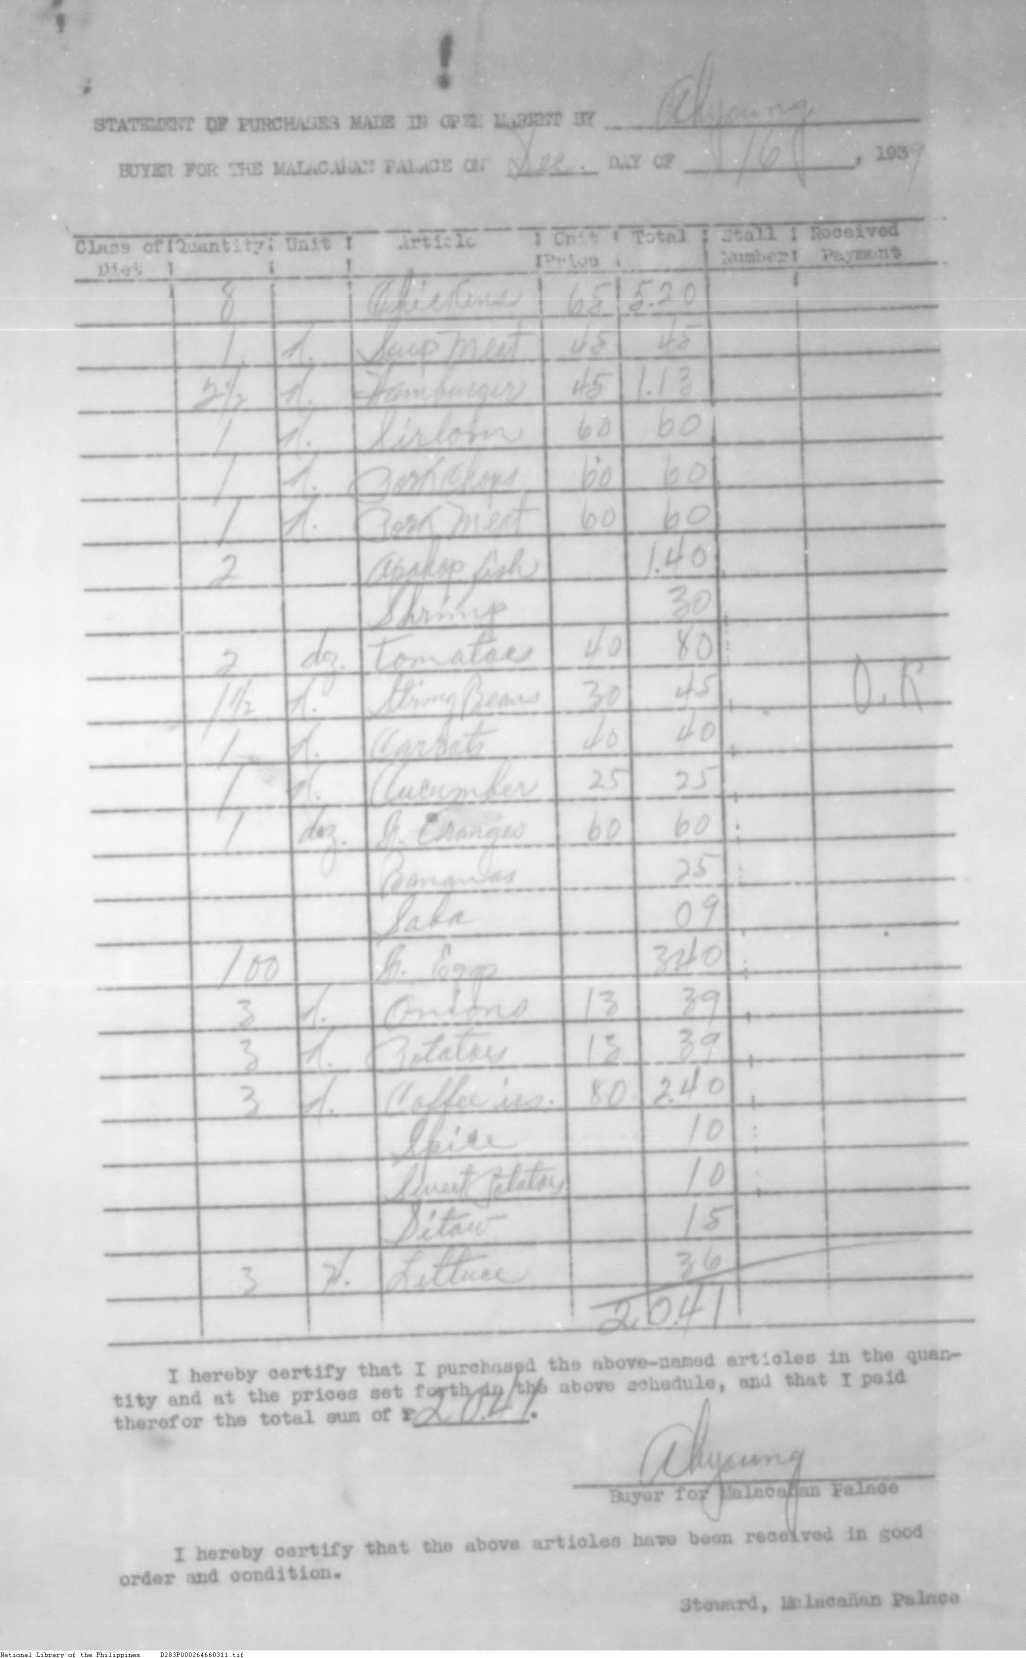 STATEMENT OF PURCHASES MADE IN OPEN MARKET BY Ahyoung
BUYER FOR THE MALACAÑAN PALACE ON Dec. DAY OF 16, 1939
Class of Diet Quantity Unit Article Unit Price Total Stall Number Received Payment
8 Chickens 65 5.20
1 k. Soup Meat 45 45
2 1/2 k. Hamburger 45 1.13
1 k. Sirloin 60 60
1 k. Pork Chops 60 60
1 k. Pork Meat 60 60
2 Apahap fish 1.40
Shrimp 30
2 doz. Tomatoes 40 80
1 1/2 k. String Beans 30 45 O.K
1 k. Carrots 40 40
1 k. Cucumber 25 25
1 doz. Oranges 60 60
Bananas 25
Saba 09
100 Eggs 3.40
3 k. Onions 13 39
3 k. Potatoes 13 39
3 k. Coffee 80 2.40
Spice 10
Sweet Potatoes 10
Sitaw 15
3 Lettuce 36
20.41
I hereby certify that I purchased the above-named articles in the quan-
tity and at the prices set forth in the above schedule, and that I paid
therefor the total sum of ₱20.41.
Ahyoung
Buyer for Malacañan Palace
I hereby certify that the above articles have been received in good
order and condition.
Steward, Malacañan Palace
National Library of the Philippines D283P000264660311.tif